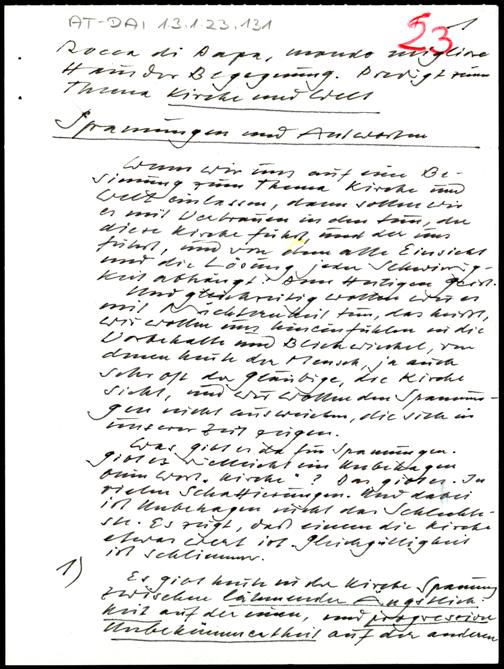 AT-DAI 13.1.23.131
23
1
Rocca di Papa, mondo migliore
Haus der Begegnung. Predigt zum
Thema Kirche und Welt
Spannungen und Antworten
Wenn wir uns auf eine Be-
sinnung zum Thema Kirche und
Welt einlassen, dann sollen wir
es mit Vertrauen in den tun, der
diese Kirche führt, und der uns
führt, und von dem alle Einsicht
und die Lösung jeder Schwierig-
keit abhängt: Dem Heiligen Geist.
Und gleichzeitig wollen wir es
mit Nüchternheit tun, das heisst,
wir wollen uns hineinfühlen in die
Vorbehalte und Blickwinkel, von
denen heute der Mensch, ja auch
sehr oft der Gläubige, die Kirche
sieht, und wir wollen den Spannun-
gen nicht ausweichen, die sich in
unserer Zeit zeigen.
Was gibt es da für Spannungen.
Gibt es vielleicht ein Unbehagen
beim Wort "Kirche"? Das gibt es. In
vielen Schattierungen. Und dabei
ist Unbehagen nicht das Schlechte-
ste. Es zeigt, daß einem die Kirche
etwas wert ist. Gleichgültigkeit
ist schlimmer.
1) Es gibt heute in der Kirche Spannung
zwischen lähmender Ängstlich-
keit auf der einen, und progressive
Unbekümmertheit auf der anderen